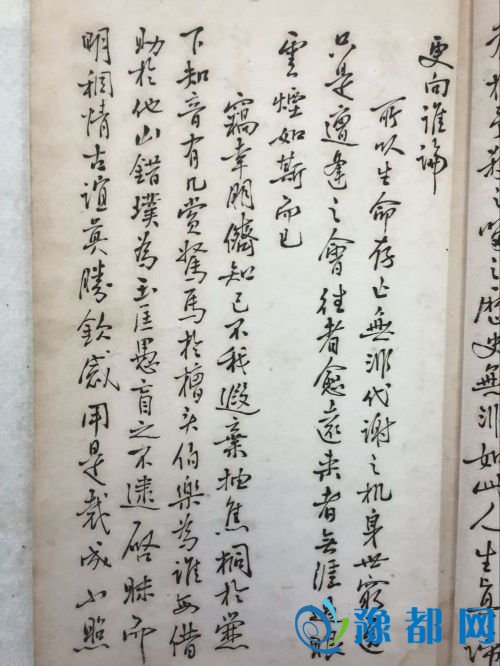 更向谁论
所以生命存亡無非代谢之机身世穷通
只是遭逢之會往者愈遠来者無涯
雲煙如斯而已
竊幸朋儕知己不我遐棄抽焦桐於爨
下知音有几赏驽馬於櫪头伯樂為谁每借
助於他山錯璞為玉匡愚盲之不逮啓昧而
明稠情古谊真勝欽感用是裁成小照
歷史無非如此人生
豫都网